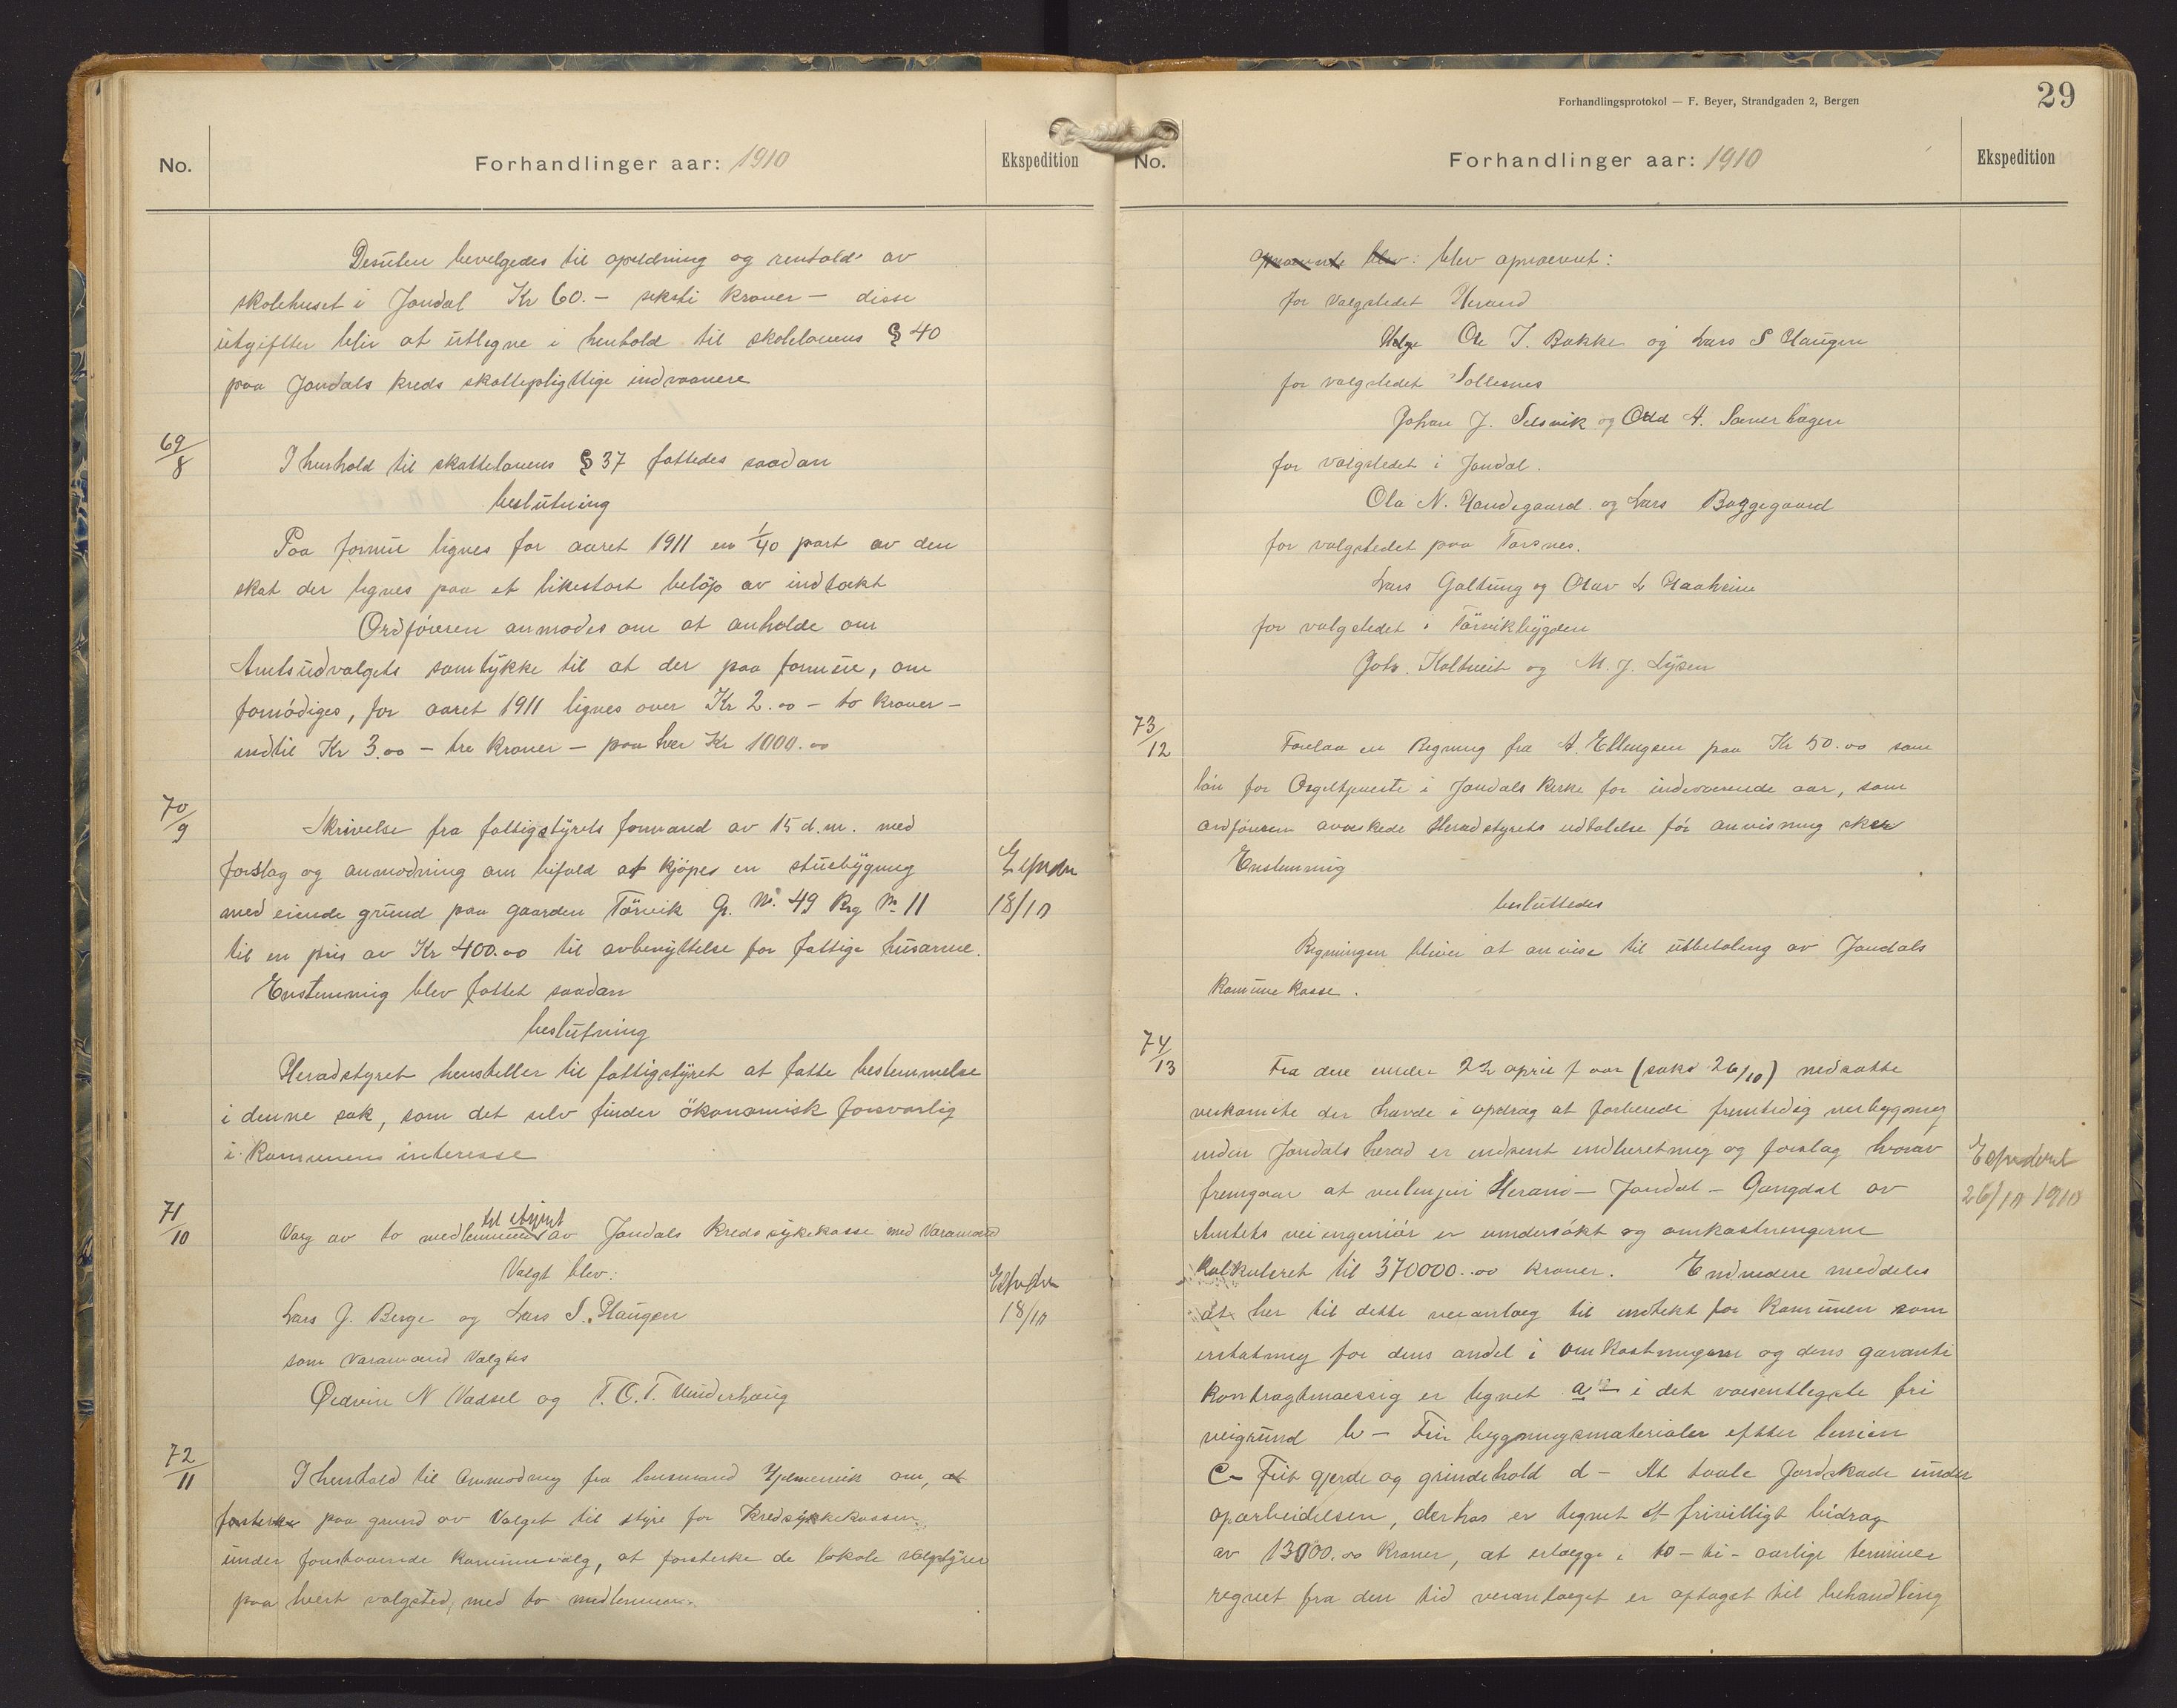 No.
Forhandlinger aar: 1910
Ekspedition
Desuten bevelgedes til opeldning og renhold av
skolehuset i Jondal Kr 60.- seksti kroner - disse
utgiftter blir at utlegne i henhold til skolelovens § 40
paa Jondals kreds skattepligttige indvaanere
69/8
I henhold til skattelovens § 37 fattedes saadan
beslutning
Paa formue lignes for aaret 1911 en 1/40 part av den
skat der lignes paa et likestort beløp av indtækt
Ordføreren anmodes om at anholde om
Amtsudvalgets samtykke til at der paa formue, om
fornødiges, for aaret 1911 lignes over Kr 2.00 - to kroner -
indtil Kr 3.00 - tre kroner - paa hver Kr 1000.00
70/9
Skrivelse fra fattigstyrets formand av 15 d.m. med
forslag og anmodning om bifald at kjøpes en stuebygning
med eiende grund paa gaarden Tørvik G. No. 49 Brg No 11
til en pris av Kr 400.00 til avbenyttelse for fattige husarme.
Enstemmig blev fattet saadan
beslutning
Heradstyret henstiller til fattigstyret at fatte bestemmelse
i denne sak, som det selv finder økonomisk forsvarlig
i kommunens interesse
18/10
71/10
Valg av to medlemmer til styret av Jondals kreds sykekasse med Varamænd
Valgt blev:
Lars J. Berge og Lars S. Haugen
som varamænd valgtes
N Vadsel og T. O. T. Underhaug
18/10
72/11
I henhold til Anmodning fra lensmand om, at
forsterke paa grund av Valget til styre for Kredsykekassen
under forestaaende kommunevalg, at forsterke de lokale valgstyrer
paa hvert valgsted, med to medlemmer.
Forhandlingsprotokol — F. Beyer, Strandgaden 2, Bergen
29
No.
Forhandlinger aar: 1910
Ekspedition
opnævnte blev: blev opnævnt:
for valgstedet Herand
Helge Ole J. Bakke og Lars S Haugen
for valgstedet Solesnes
Johan J. Selsvik og Odd A. Samerhagen
for valgstedet i Jondal.
Ola N. Handegaard. og Lars Byggegaard
for valgstedet paa Torsnes.
Lars Galtung og Olav L Haaheim
for valgstedet i Tørvikbygden
Joh. Koltveit og M. J. Lysen
73/12
Forelaa en Regning fra A. Ellingsen paa Kr 50.00 som
løn for Orgeltjeneste i Jondals kirke for indeværende aar, som
ordføreren avæskede Heradstyrets udtalelse før anvisning sker
Enstemmig
besluttedes
Regningen bliver at anvise til utbetaling av Jondals
kommunekasse.
74/13
Fra den under 22 april f aar (saks 26/10) nedsatte
veikomite der havde i opdrag at forberede fremtidig veibygning
inden Jondals herad er indsent indberetning og forslag hvorav
fremgaar at veilinjen Herand - Jondal - Gangdal av
Amtets veiingeniør er undersøkt og omkostningerne
kalkuleret til 370000.00 kroner. Endvidere meddeles
at her til dette veianlæg til indtekt for kommunen som
erstatning for dens andel i omkostningerne og dens garanti
kontragtmæssig er tegnet a - i det væsentligste fri
veigrund b - Frie bygningsmaterialer eftter linien
c - Frit gjerde og grindehold d - At taale Jordskade under
oparbeidelsen, derhos er tegnet et frivilligt bidrag
av 13000.00 kroner, at erlægge i 10 - ti - aarlige terminer
regnet fra den tid veianlæget er optaget til behandling
Espederet
26/10 1910